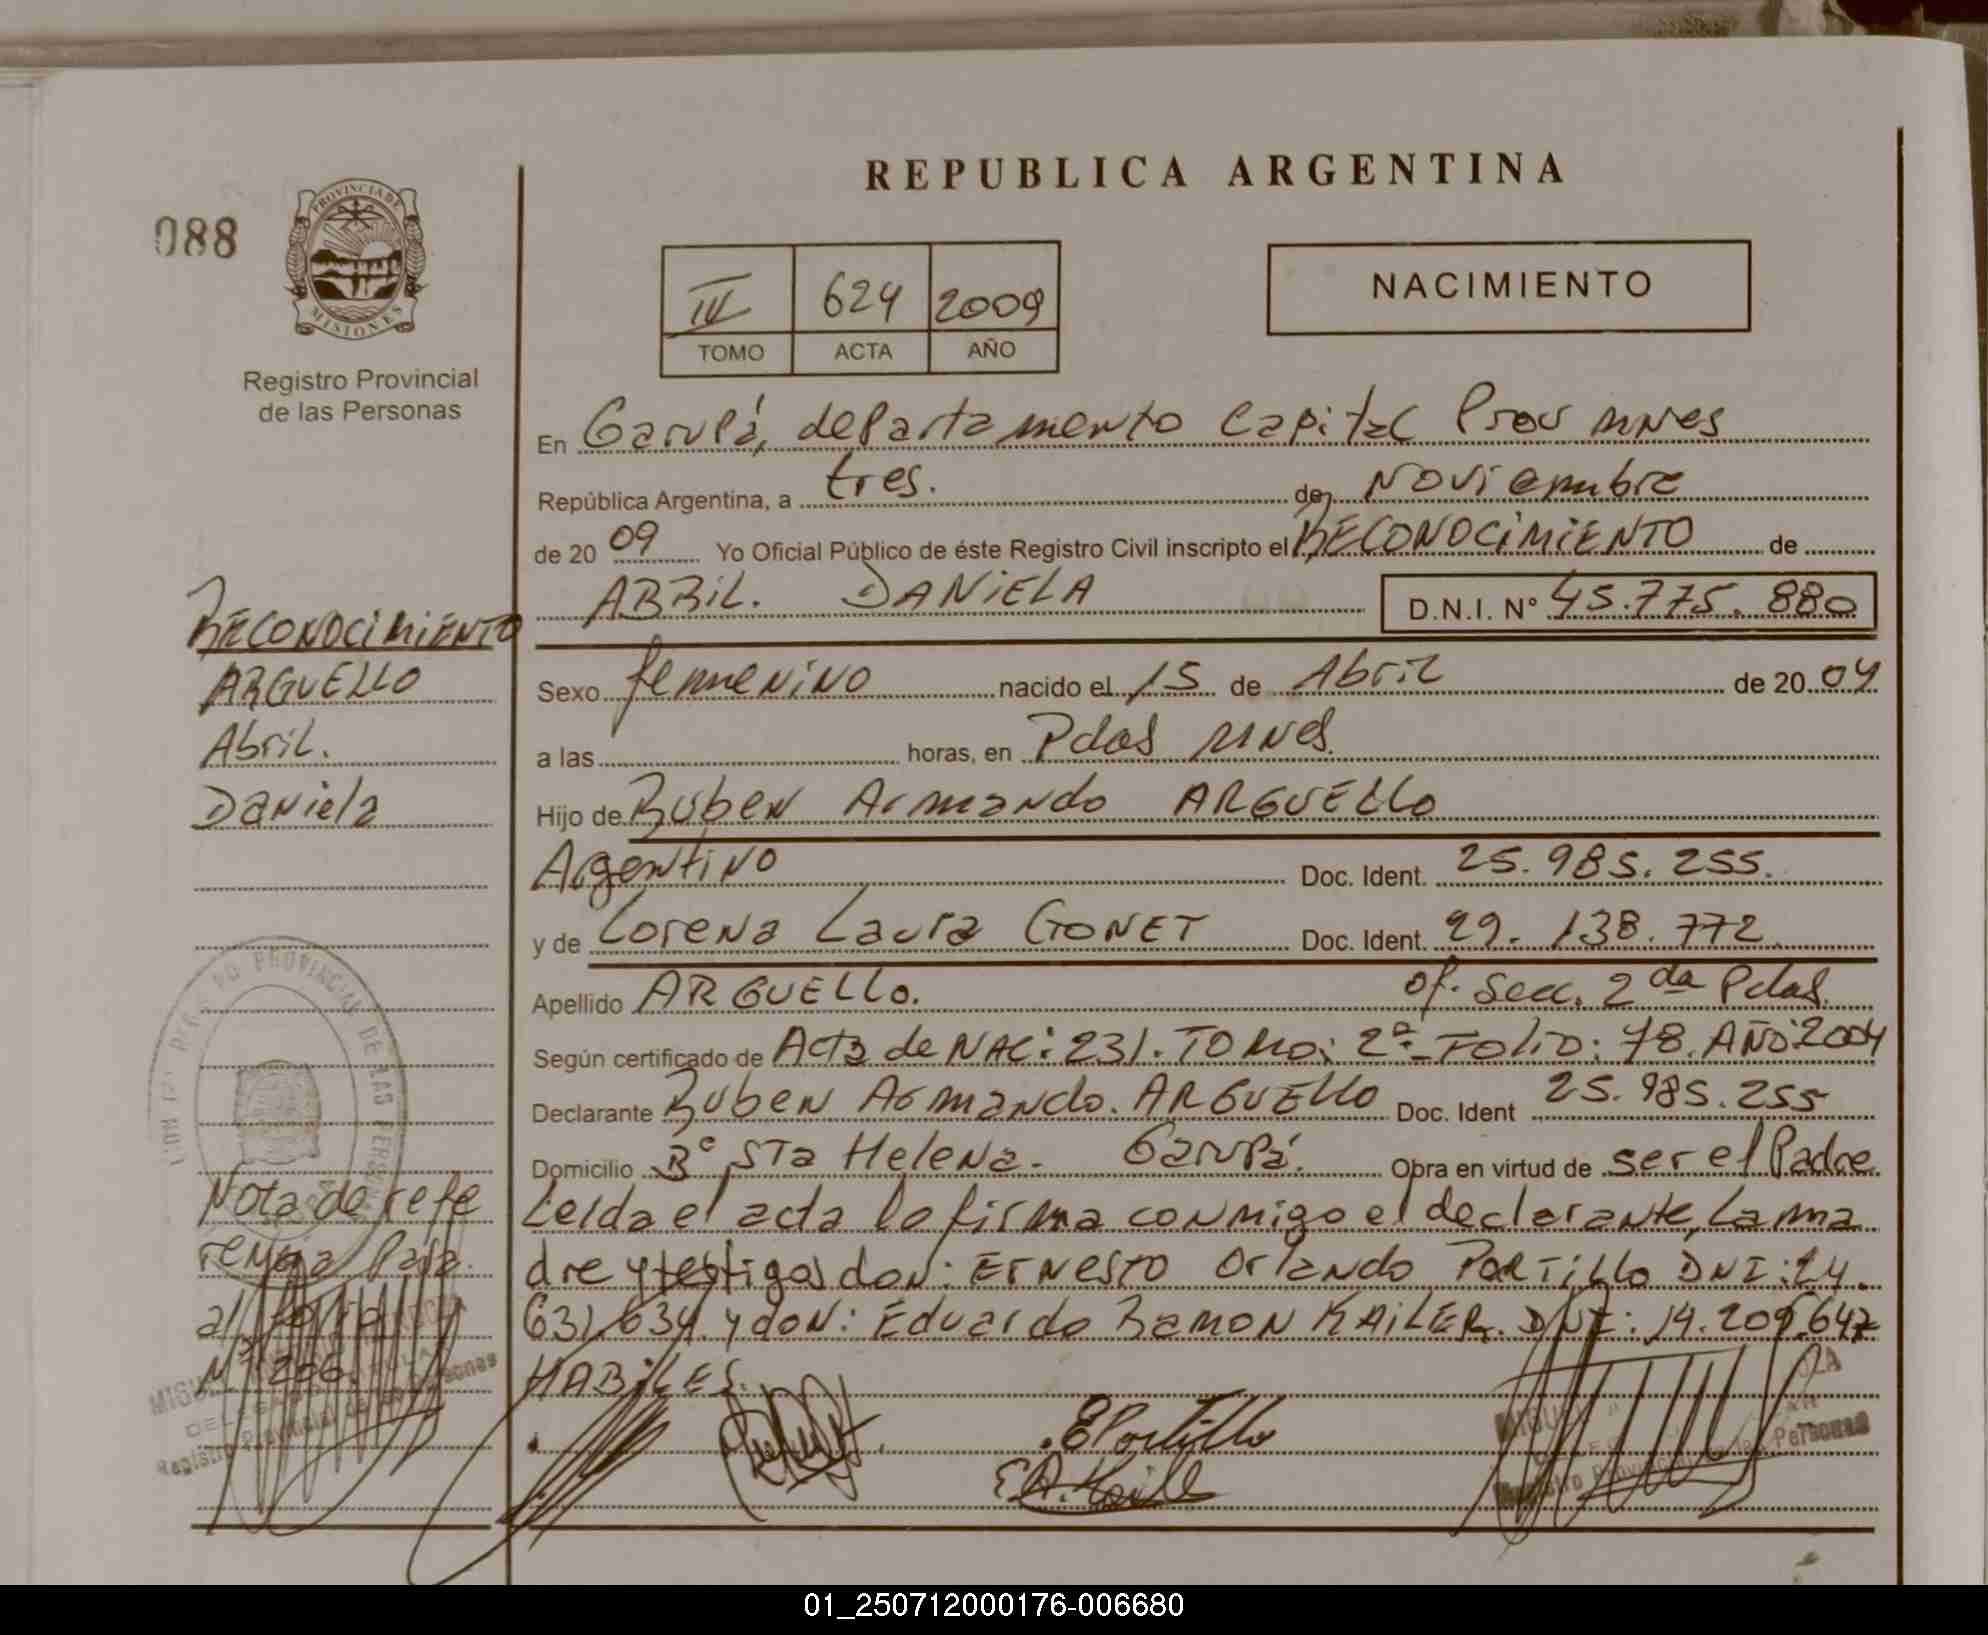 REPUBLICA ARGENTINA
088
PROVINCIA DE
MISIONES
Registro Provincial
de las Personas
III 624 2009
TOMO ACTA AÑO
NACIMIENTO
En Garupá, departamento Capital Prov mnes
República Argentina, a tres. de Noviembre
de 20 09 Yo Oficial Público de éste Registro Civil inscripto el RECONOCIMIENTO de
ABRIL. DANIELA D.N.I. N° 45.775.880
Sexo femenino nacido el 15 de Abril de 20 04
a las horas, en Pdas mnes.
Hijo de Ruben Armando ARGUELLO
Argentino Doc. Ident. 25.985.255.
y de Lorena Laura GONET Doc. Ident. 29.138.772.
Apellido ARGUELLO. of. Secc. 2da Pdas.
Según certificado de Acta de NAC: 231. TOMO: 2ª- FoliO: 78. AÑO:2004
Declarante Ruben Armando. ARGUELLO Doc. Ident 25.985.255
Domicilio B° STa Helena. Garupá. Obra en virtud de ser el Padre
Leida el acta la firma conmigo el declarante, La ma
dre y testigos don: Ernesto Orlando PORTILLO DNI:24.
631.634. y don: Eduardo Ramon KAILER. DNI: 14.209.647
HABILES.
E Portillo
RECONOCIMIENTO
ARGUELLO
Abril.
Daniela
PROVINCIAL DE LAS PERSONAS
Nota de refe
rencia Pasa
al folio
N° 206.
Registro Provincial de las Personas
Registro Provincial de las Personas
01_250712000176-006680